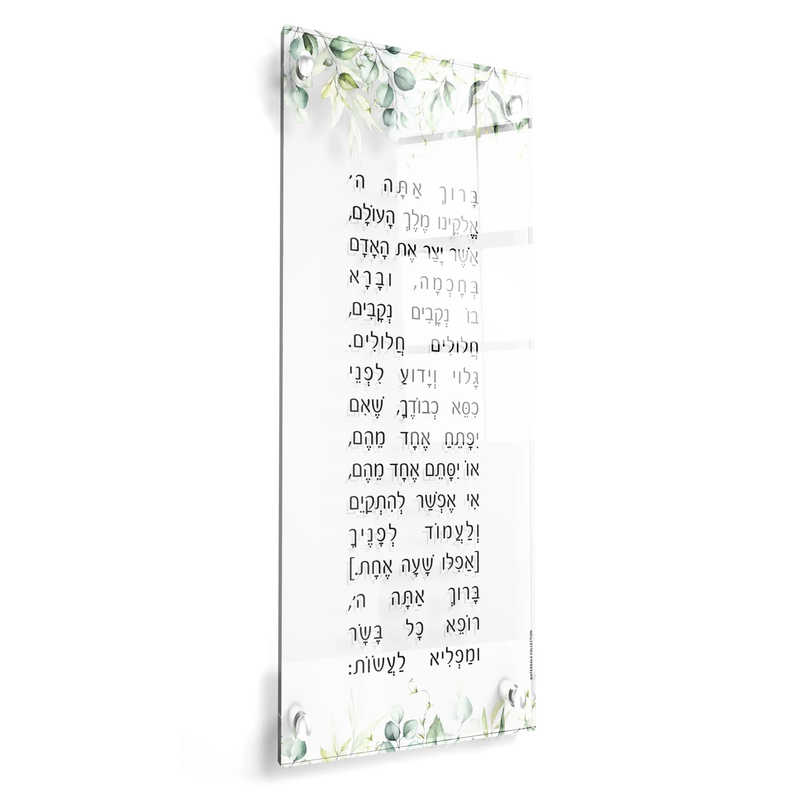 בָּרוּךְ אַתָּה ה׳
אֱלֹקֵינוּ מֶלֶךְ הָעוֹלָם,
אֲשֶׁר יָצַר אֶת הָאָדָם
בְּחָכְמָה, וּבָרָא
בוֹ נְקָבִים נְקָבִים,
חֲלוּלִים חֲלוּלִים.
גָּלוּי וְיָדוּעַ לִפְנֵי
כִסֵּא כְבוֹדֶךָ, שֶׁאִם
יִפָּתֵחַ אֶחָד מֵהֶם,
אוֹ יִסָּתֵם אֶחָד מֵהֶם,
אִי אֶפְשַׁר לְהִתְקַיֵּם
וְלַעֲמוֹד לְפָנֶיךָ
[אֲפִלּוּ שָׁעָה אֶחָת.]
בָּרוּךְ אַתָּה ה׳,
רוֹפֵא כָל בָּשָׂר
וּמַפְלִיא לַעֲשׂוֹת:
WATERDALE COLLECTION